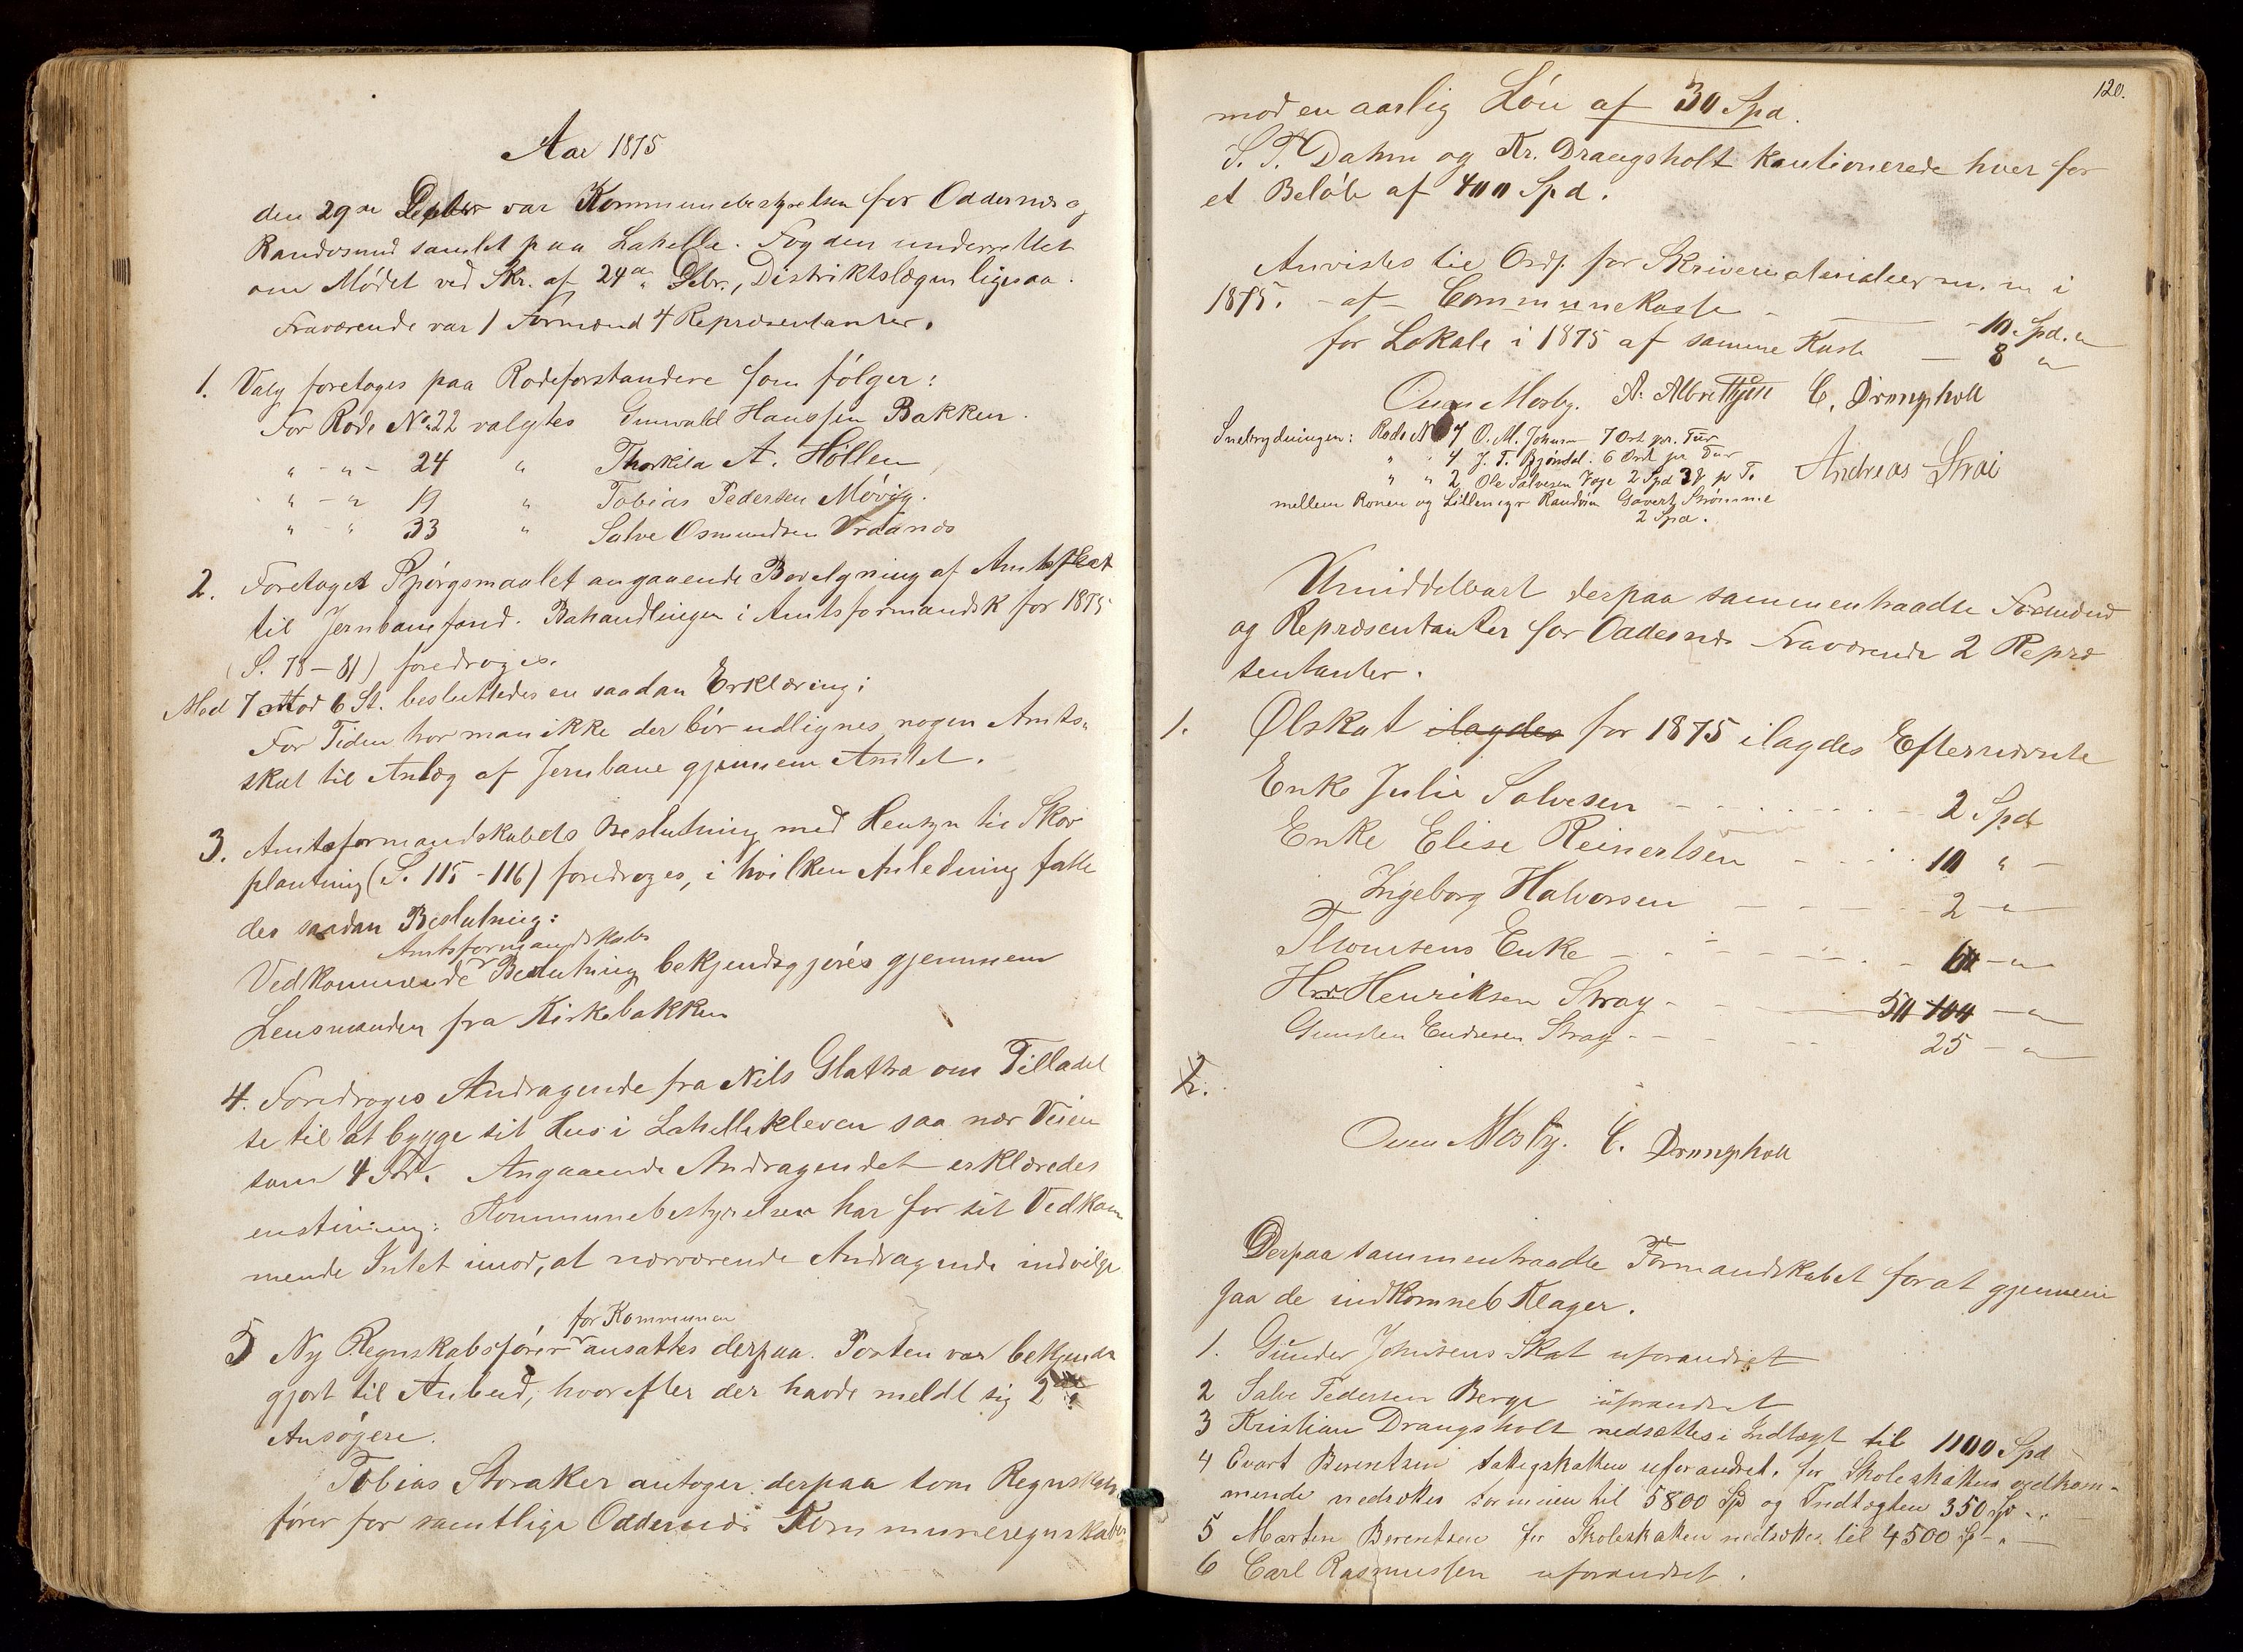 Aar 1875
den 29de Decbr var Kommunebestyrelsen for Oddernes og
Randøsund samlet paa Lahelle. Fogden underrettet
om Mødet ved Skr. af 24de Debr., Distriktslægen ligesaa.
Fraværende var 1 Formænd 4 Repræsentanter.
1. Valg foretoges paa Rodeforstandere som følger:
For Rode No 22 valgtes Gunvald Hanssen Bakken.
" - " - 24 " Thorkild A. Hollen
" - " 19 " Tobias Pedersen Møvig.
" - " 33 " Salve Osmundsen Vraanes
2. Foretoget Spørgsmaalet angaaende Bevilgning af Amtsskat
til Jernbanefond. Behandlingen i Amtsformandsk for 1875
(S. 78-81) foredroges.
Med 7 mod 6 St. besluttedes en saadan Erklæring:
For Tiden tror man ikke der bør udlignes nogen Amts-
skat til Anlæg af Jernbane gjennem Amtet.
3. Amtsformandskabets Beslutning med Hensyn til Skov
plantning (S. 115-116) foredroges, i hvilken Anledning fatte
des saadan Beslutning:
Amtsformandskabs
Vedkommende Beslutning bekjendtgjøres gjennem
Lensmanden fra Kirkebakken
4. Foredroges Andragende fra Nils Glattra om Tilladel
se til at bygge sit Hus i Lahellekleven saa nær Veien
som 4 Fod. Angaaende Andragendet erklæredes
enstemmig: Kommunebestyrelsen har for sit Vedkom
mende Intet imod, at nærværende Andragende indvilges
for Kommunen
5 Ny Regnskabsfører ansattes derpaa. Posten var bekjendt
gjort til Anbud, hvorefter der havde meldt sig 2
Ansøgere.
Tobias Storaker antoges derpaa som Regnskabs
fører for samtlige Oddernes Kommuneregnskaber
120.
mod en aarlig Løn af 30 Spd.
S. T. Dahm og Kr. Drangsholt kautionerede hver for
et Beløb af 400 Spd.
Anvistes til Ordf. for Skrivematerialier m. m i
1875. - af Communekasse - 10 Spd. "
for Lokale i 1875 af samme Kasse - 8 "
Ouen Mosby. A. Albrettsen C. Drangsholt
Snebrydningen: Rode No 7 O. M. Johnsen 7 Ort pr. Tur
" " 4 J. T. Bjøndal. 6 Ort pr Tur
" " 2 Ole Salvesen Foge 2 Spd 3 ß pr T. Andreas Strai
mellem Ronen og Lillemyr Randøsu Govert Strømme
2 Spd.
Umiddelbart derpaa sammentraadte Formænd
og Repræsentanter for Oddernes Fraværende 2 Repræ
sentanter.
1. Ølskat ilagdes for 1875 ilagdes Efternævnte
Enke Julie Salvesen - 2 Spd
Enke Elise Reinertsen - 10 " -
Ingeborg Halvorsen - 2 - "
Thomsens Enke - 60 - "
Hr Henriksen Stray - 50 100 - "
Gunsten Endresen Stray - 25 - "
2.
Ouen Mosby. C. Drangsholt
Derpaa sammentraadte Formandskabet for at gjennem
gaa de indkomne 6 Klager.
1. Gunder Johnsens Skat uforandret
2 Salve Pedersen Berge uforandret
3 Kristian Drangsholt nedsættes i Indtægt til 1100 Spd
4 Evart Berentsen fattigskatten uforandret. for Skoleskattens vedkom-
mende nedsættes formuen til 5800 Sp og Indtægten 350 Sp "
5 Marten Berentsen for Skoleskatten nedsættes til 4500 Sp - " -
6 Carl Rasmussen uforandret.